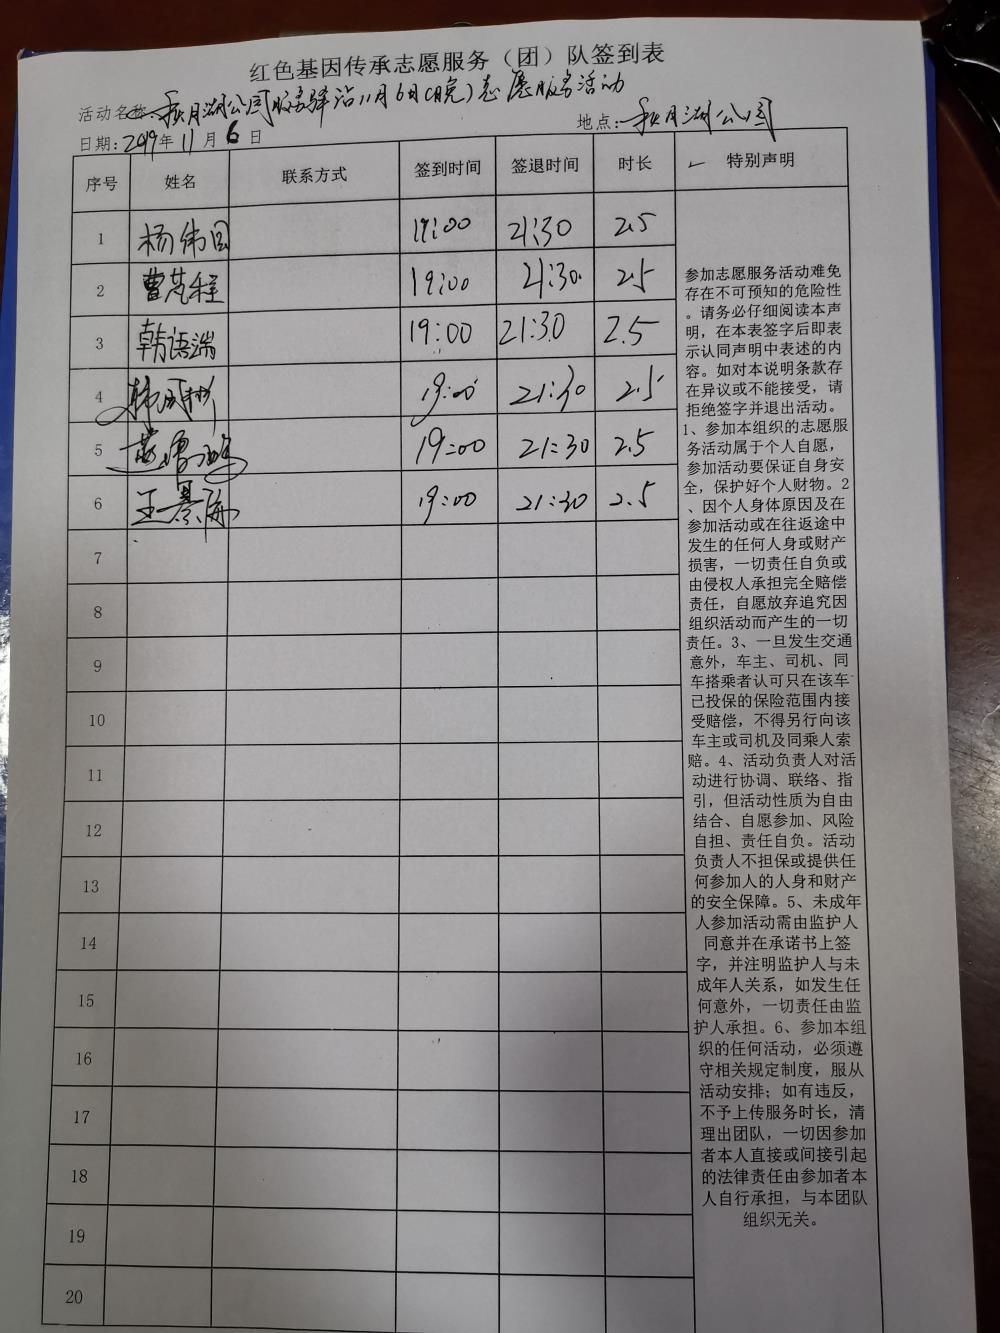 红色基因传承志愿服务（团）队签到表
活动名称:秋月湖公园服务驿站11月6日(晚)志愿服务活动
日期:2019年11月6日 地点:秋月湖公园
序号 姓名 联系方式 签到时间 签退时间 时长 特别声明
1 杨伟国 19:00 21:30 2.5
2 曹芑程 19:00 21:30 2.5
3 韩语湍 19:00 21:30 2.5
4 19:00 21:30 2.5
5 19:00 21:30 2.5
6 王景 19:00 21:30 2.5
7
8
9
10
11
12
13
14
15
16
17
18
19
20
参加志愿服务活动难免
存在不可预知的危险性
。请务必仔细阅读本声
明，在本表签字后即表
示认同声明中表述的内
容。如对本说明条款存
在异议或不能接受，请
拒绝签字并退出活动。
1、参加本组织的志愿服
务活动属于个人自愿，
参加活动要保证自身安
全，保护好个人财物。2
、因个人身体原因及在
参加活动或在往返途中
发生的任何人身或财产
损害，一切责任自负或
由侵权人承担完全赔偿
责任，自愿放弃追究因
组织活动而产生的一切
责任。3、一旦发生交通
意外，车主、司机、同
车搭乘者认可只在该车
已投保的保险范围内接
受赔偿，不得另行向该
车主或司机及同乘人索
赔。4、活动负责人对活
动进行协调、联络、指
引，但活动性质为自由
结合、自愿参加、风险
自担、责任自负。活动
负责人不担保或提供任
何参加人的人身和财产
的安全保障。5、未成年
人参加活动需由监护人
同意并在承诺书上签
字，并注明监护人与未
成年人关系，如发生任
何意外，一切责任由监
护人承担。6、参加本组
织的任何活动，必须遵
守相关规定制度，服从
活动安排；如有违反，
不予上传服务时长，清
理出团队，一切因参加
者本人直接或间接引起
的法律责任由参加者本
人自行承担，与本团队
组织无关。